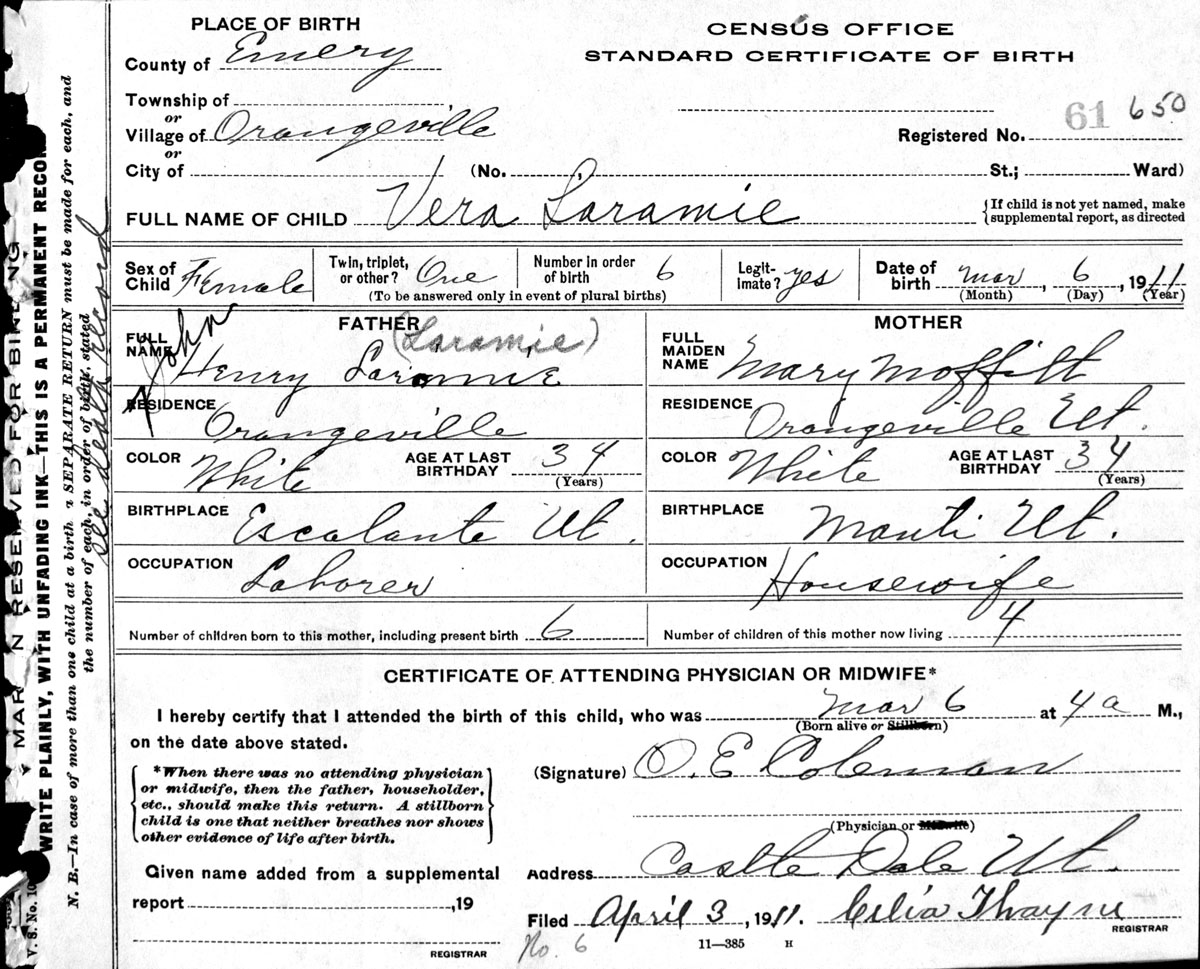 PLACE OF BIRTH
County of Emery
Township of
or
Village of Orangeville
or
City of (No. , St.; Ward)
CENSUS OFFICE
STANDARD CERTIFICATE OF BIRTH
Registered No. 61 650
FULL NAME OF CHILD Vera Laramie {If child is not yet named, make supplemental report, as directed
Sex of Child Female
Twin, triplet, or other? One
Number in order of birth 6
(To be answered only in event of plural births)
Legitimate? yes
Date of birth Mar, 6, 1911
(Month) (Day) (Year)
FATHER
(Laramie)
FULL NAME John Henry Laramie
RESIDENCE Orangeville
COLOR White AGE AT LAST BIRTHDAY 34
(Years)
BIRTHPLACE Escalante Ut.
OCCUPATION Laborer
MOTHER
FULL MAIDEN NAME Mary Moffitt
RESIDENCE Orangeville Ut.
COLOR White AGE AT LAST BIRTHDAY 34
(Years)
BIRTHPLACE Manti Ut.
OCCUPATION Housewife
Number of children born to this mother, including present birth 6
Number of children of this mother now living 4
CERTIFICATE OF ATTENDING PHYSICIAN OR MIDWIFE*
I hereby certify that I attended the birth of this child, who was Mar 6 at 4a M.,
(Born alive or Stillborn)
on the date above stated.
{*When there was no attending physician
or midwife, then the father, householder,
etc., should make this return. A stillborn
child is one that neither breathes nor shows
other evidence of life after birth.}
(Signature) O. E Coleman
(Physician or Midwife)
Given name added from a supplemental
report , 19
REGISTRAR
Address Castle Dale Ut.
Filed April 3, 1911. Celia Thayne
REGISTRAR
No. 6
11—385 H
MARGIN RESERVED FOR BINDING
WRITE PLAINLY, WITH UNFADING INK—THIS IS A PERMANENT RECORD
N. B.—In case of more than one child at a birth a SEPARATE RETURN must be made for each, and
the number of each, in order of birth, stated
See death record
V. S. No. 10